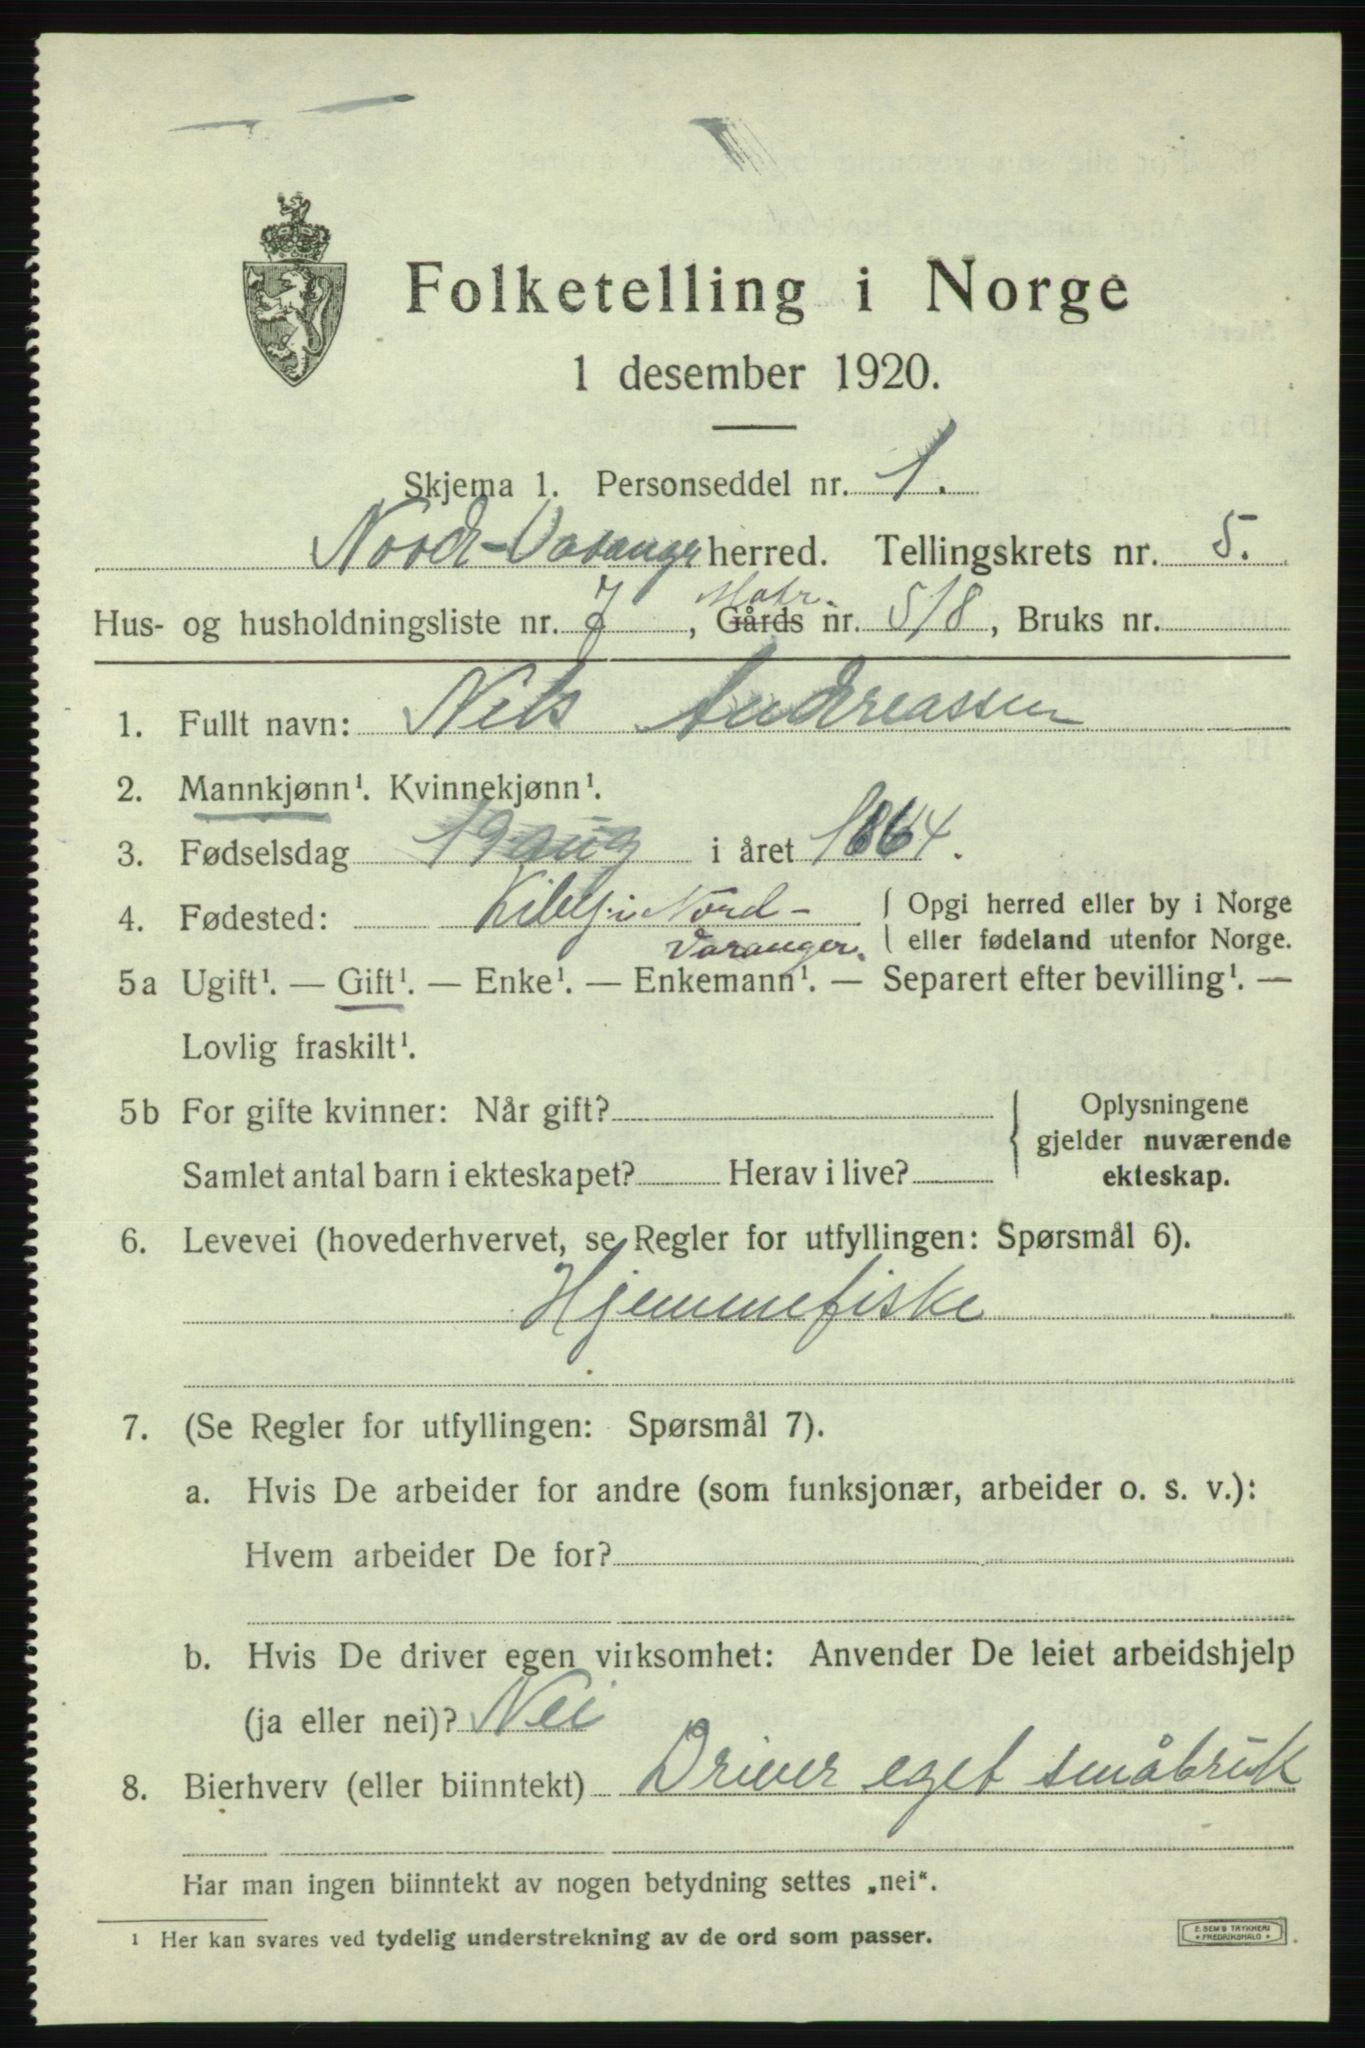 Folketelling i Norge
1 desember 1920.
Skjema 1. Personseddel nr. 1.
Nord-Varanger herred. Tellingskrets nr. 5.
Matr.
Hus- og husholdningsliste nr. 7, Gårds nr. 518, Bruks nr.
1. Fullt navn: Nels Andreassen
2. Mannkjønn¹. Kvinnekjønn¹.
3. Fødselsdag 19 aug i året 1864.
4. Fødested: Kiby i Nord- { Opgi herred eller by i Norge
Varanger. eller fødeland utenfor Norge.
5a Ugift¹. — Gift¹. — Enke¹. — Enkemann¹. — Separert efter bevilling¹. —
Lovlig fraskilt¹.
5b For gifte kvinner: Når gift? } Oplysningene
gjelder nuværende
Samlet antal barn i ekteskapet? Herav i live? ekteskap.
6. Levevei (hovederhvervet, se Regler for utfyllingen: Spørsmål 6).
Hjemmefiske
7. (Se Regler for utfyllingen: Spørsmål 7).
a. Hvis De arbeider for andre (som funksjonær, arbeider o. s. v.):
Hvem arbeider De for?
b. Hvis De driver egen virksomhet: Anvender De leiet arbeidshjelp
(ja eller nei)? Nei
8. Bierhverv (eller biinntekt) Driver eget småbruk
Har man ingen biinntekt av nogen betydning settes „nei“.
¹ Her kan svares ved tydelig understrekning av de ord som passer.
E. SEM'S TRYKKERI
FREDRIKSHALD